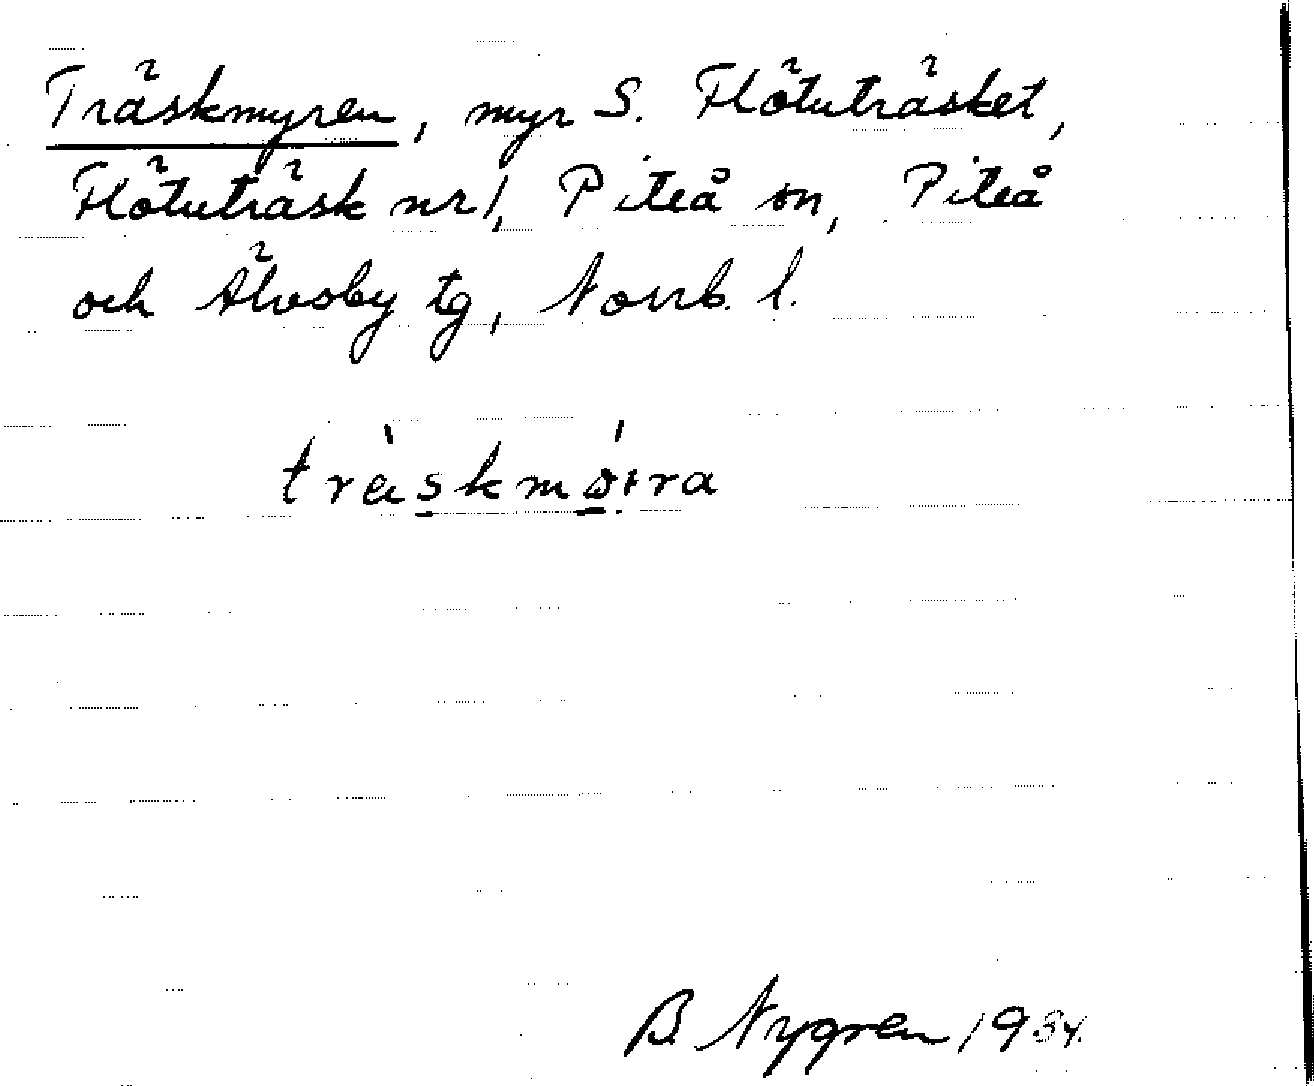 Träskmyren, myr S. Flötuträsket,
Flötuträsk nr 1, Piteå sn, Piteå
och Älvsby tg, Norrb. l.
träskmøira
B. Nygren 1934.